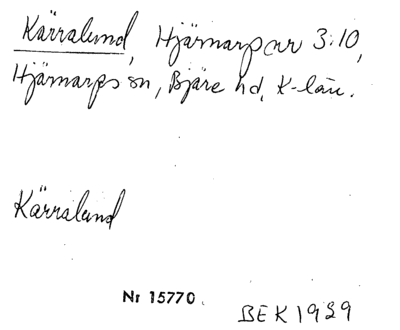 Kärralund, Hjärnarp ar 3:10,
Hjärnarps sn, Bjäre hd, K-län.
Kärralund
Nr 15770
BEK 1939